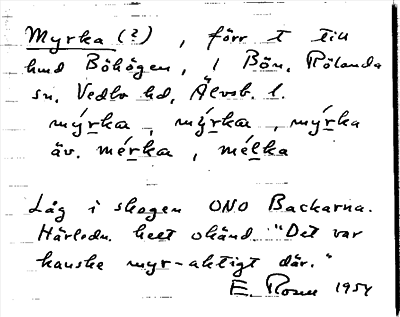 Myrka (?), förr t till
hmd Böhögen, i Bön, Rölanda
sn, Vedbo hd, Älvsb. l.
mýrka, mýrka, mýrka
äv. mérka, mélka
Låg i skogen ONO Backarna.
Härledn. helt okänd. "Det var
kanske myr-aktigt där."
E. Rosén 1954